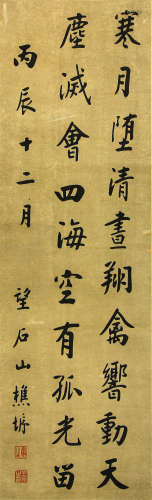 寒月堕清晝翔禽響動天
塵滅會四海空有孤光留
丙辰十二月
望石山樵